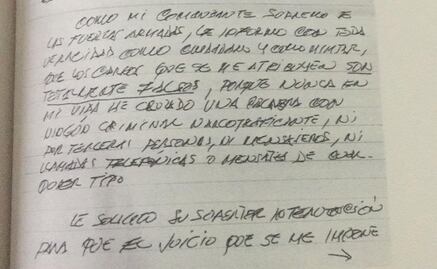 COMO MI COMANDANTE SUPREMO DE
LAS FUERZAS ARMADAS, LE INFORMO CON TODA
VERACIDAD COMO CIUDADANO Y COMO MILITAR,
QUE LOS CARGOS QUE SE ME ATRIBUYEN SON
TOTALMENTE FALSOS, PORQUE NUNCA EN
MI VIDA HE CRUZADO UNA PALABRA CON
NINGÚN CRIMINAL NARCOTRAFICANTE, NI
POR TERCERAS PERSONAS, NI MENSAJEROS, NI
LLAMADAS TELEFÓNICAS O MENSAJES DE CUAL-
QUIER TIPO
LE SOLICITO SU SUPERIOR INTERVENCIÓN
PARA QUE EL JUICIO QUE SE ME IMPONE
→